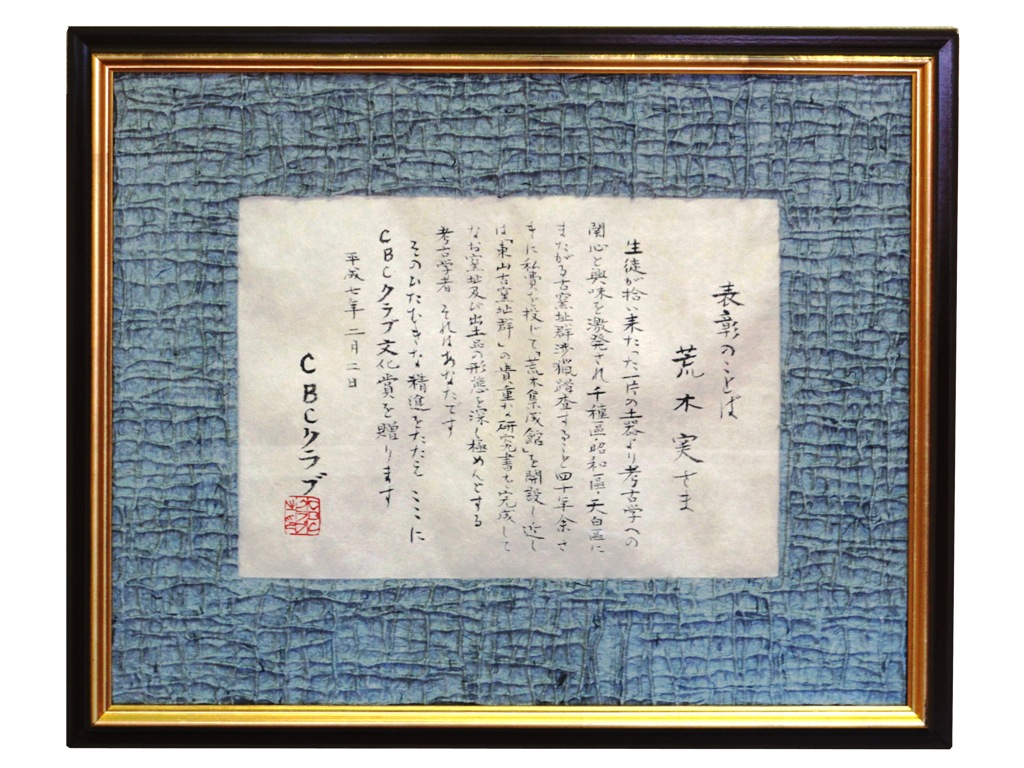 表彰のことば
荒木実さま
生徒が拾い来たった一片の土器より考古学への
関心と興味を激発され千種區・昭和區・天白區に
またがる古窯址群渉猟踏査すること四十年余さ
きに私費を投じて「荒木集成館」を開設し近し
は「東山古窯址群」の貴重な研究書を完成して
なお窯址及び出土品の形態を深く極めんとする
考古学者 それはあなたです
そのひたむきな精進をたたえ ここに
CBCクラブ文化賞を贈ります
平成七年 二月二日
CBCクラブ